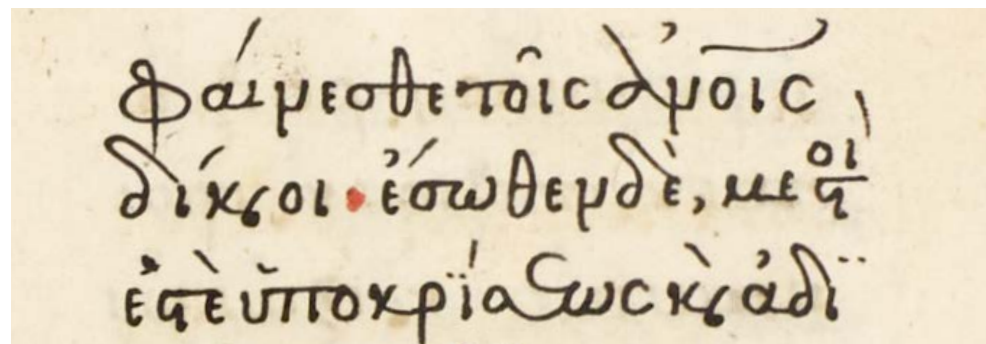 φαίνεσθε τοῖς ἀν̅ο̅ι̅ς
δίκαιοι · ἔσωθεν δὲ, μεστοί
ἐστὲ ὑποκρίσεως κὶ ἀδϊ